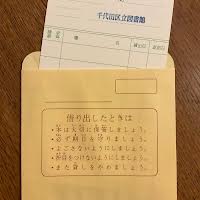 千代田区立図書館
借り出したときは
・本は大切に保管しましょう。
・必ず期日を守りましょう。
・よごさないようにしましょう。
・折目をつけないようにしましょう。
・また貸しをやめましょう。